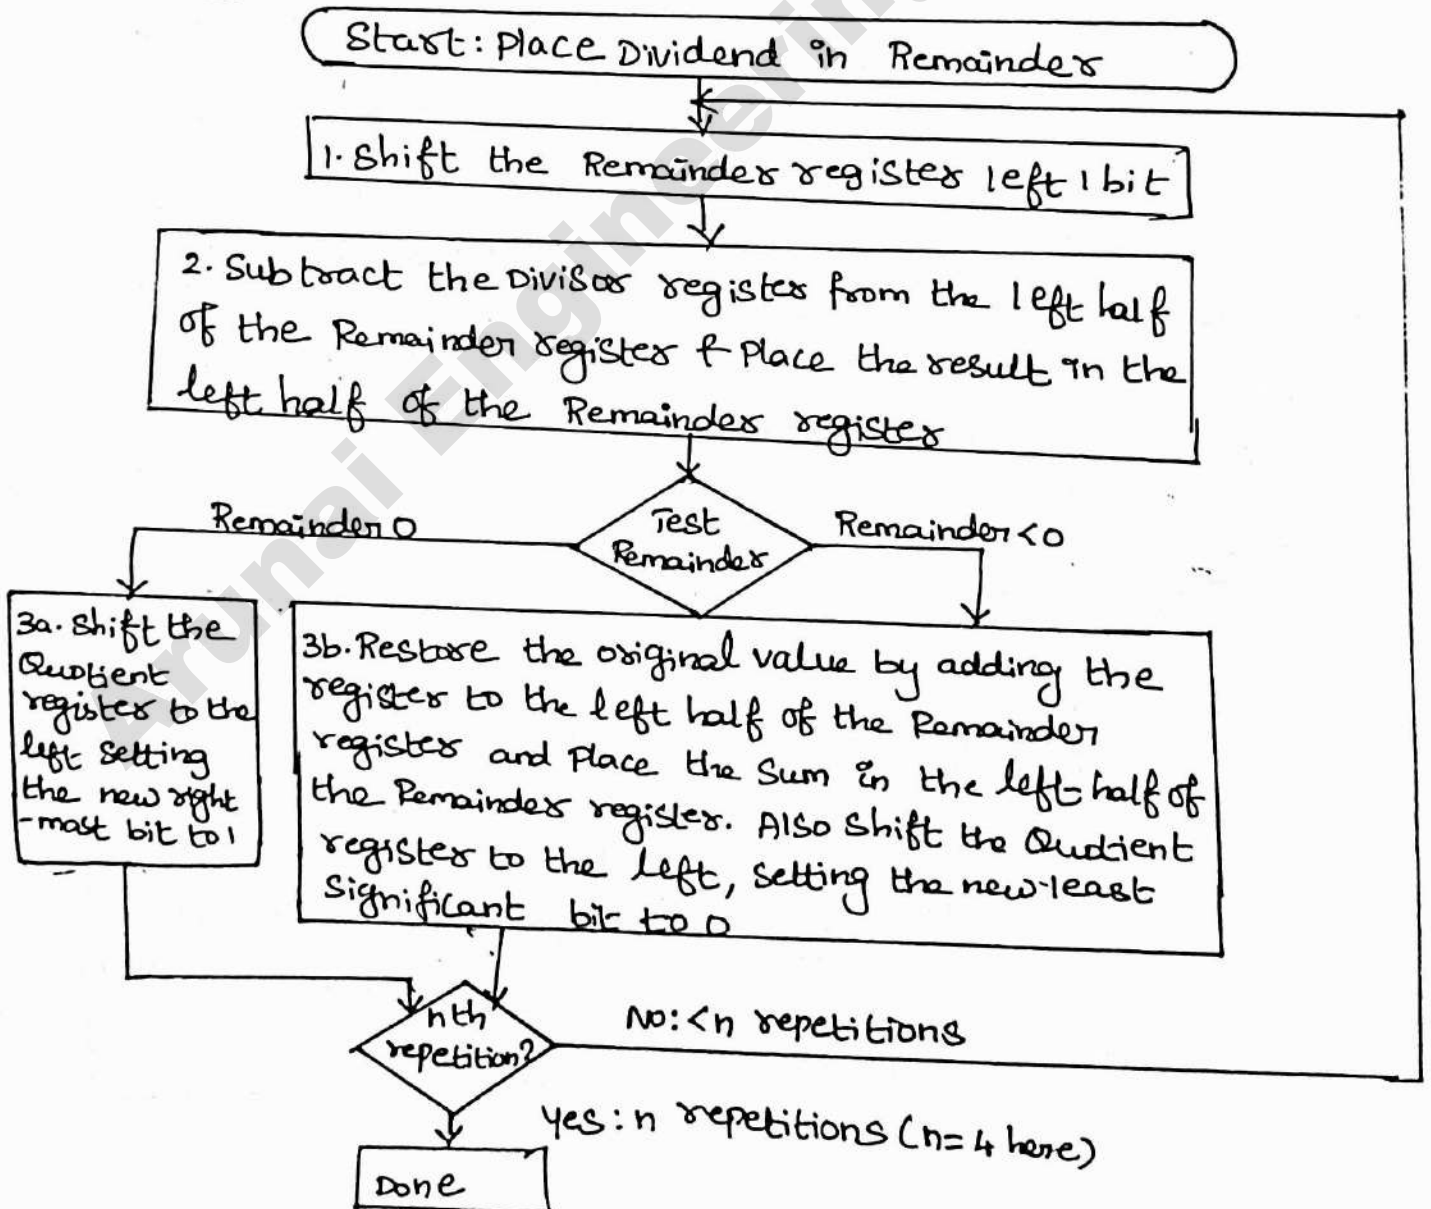 Start: Place Dividend in Remainder
1. Shift the Remainder register left 1 bit
2. Subtract the Divisor register from the left half
of the Remainder register & Place the result in the
left half of the Remainder register
Test
Remainder
Remainder 0
Remainder <0
3a. Shift the
Quotient
register to the
left setting
the new right
-most bit to 1
3b. Restore the original value by adding the
register to the left half of the Remainder
register and Place the Sum in the left half of
the Remainder register. Also Shift the Quotient
register to the left, setting the new least
significant bit to 0
nth
repetition?
No: <n repetitions
Yes: n repetitions (n=4 here)
Done
Arunai Engineerin